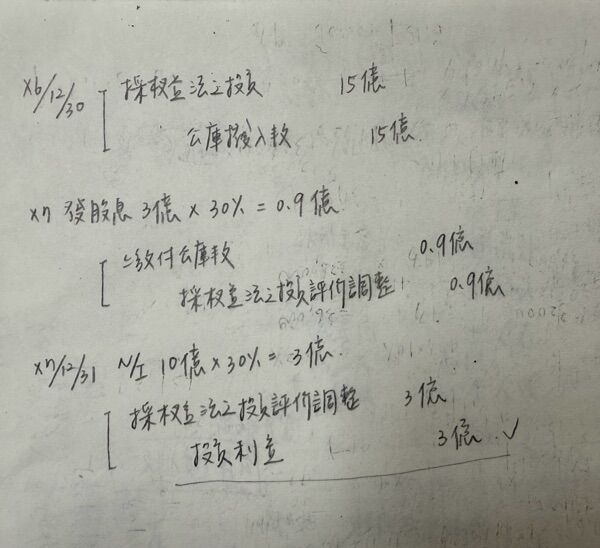 X6/12/30 採权益法之投資 15億
公庫撥入款 15億.
X7 發股息 3億 × 30% = 0.9億
繳付公庫款 0.9億
採权益法之投資評價調整 0.9億
X7/12/31 N/I 10億 × 30% = 3億.
採权益法之投資評價調整 3億
投資利益 3億. ✓